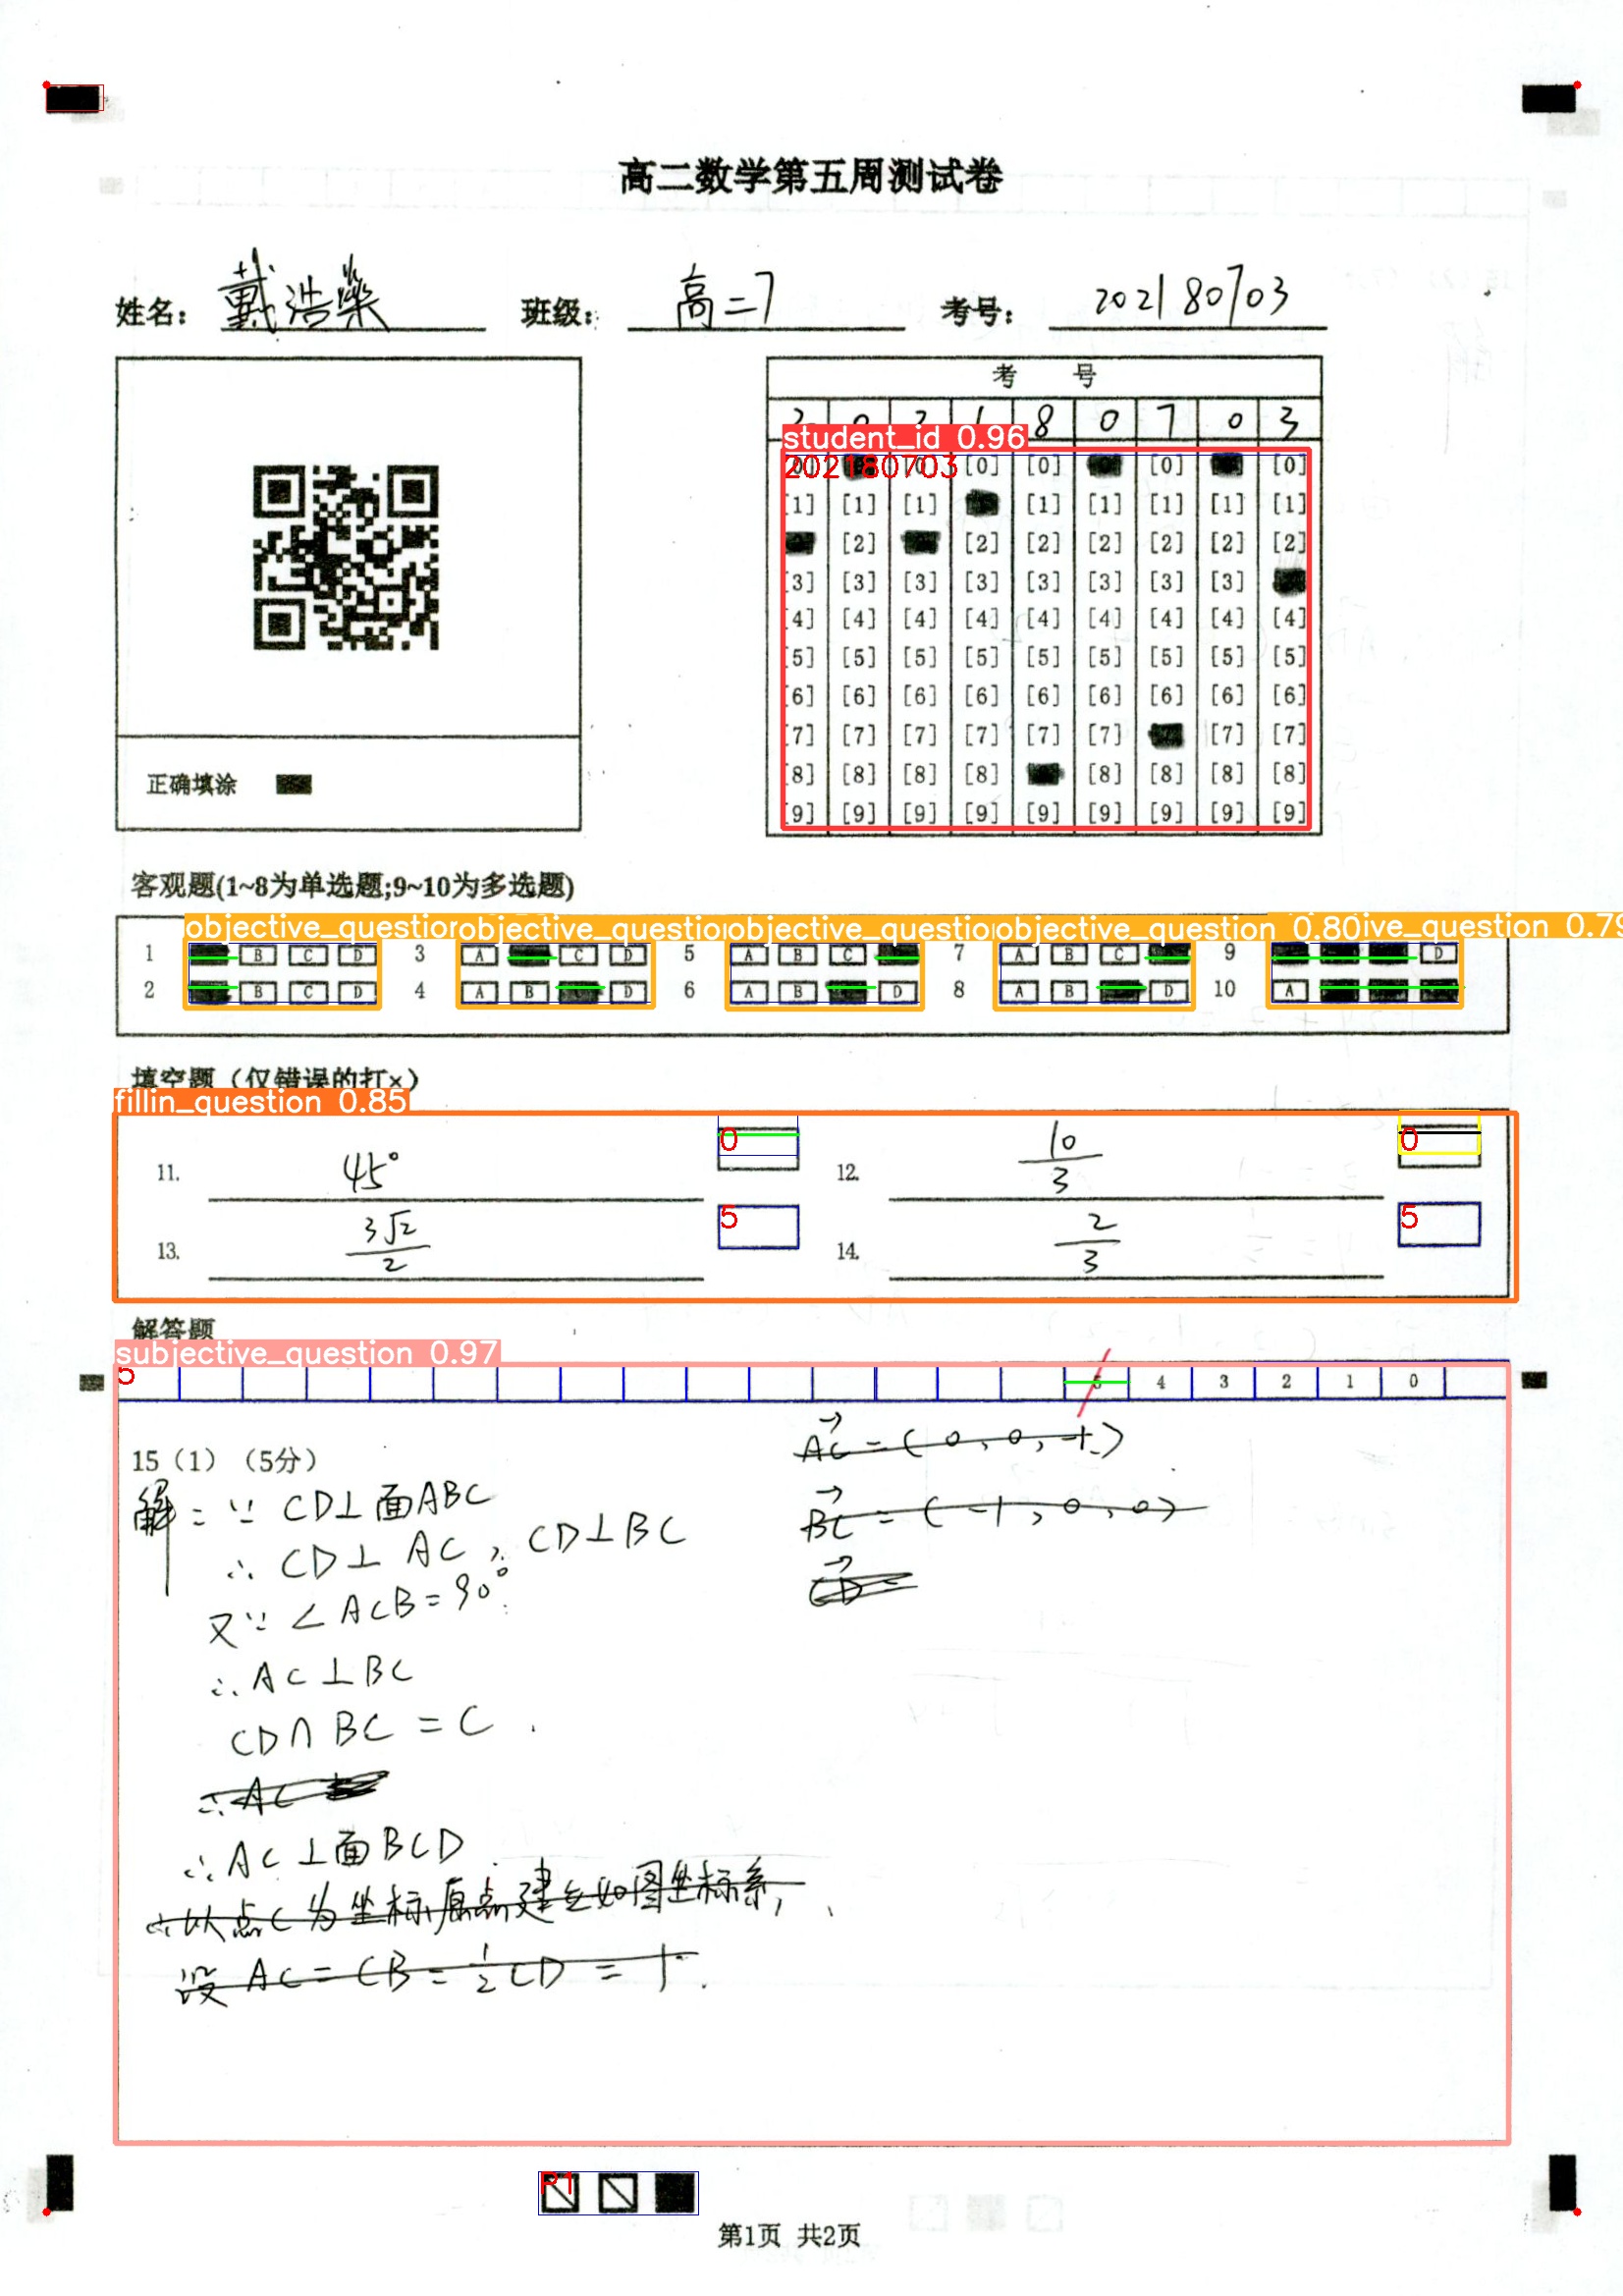 高二数学第五周测试卷
姓名: 戴浩燊 班级: 高二7 考号: 202180703
考 号
2 0 2 1 8 0 7 0 3
student_id 0.96
202180703
[0] [0] [0] [0] [0]
[1] [1] [1] [1] [1] [1] [1] [1]
[2] [2] [2] [2] [2] [2] [2]
[3] [3] [3] [3] [3] [3] [3] [3]
[4] [4] [4] [4] [4] [4] [4] [4] [4]
[5] [5] [5] [5] [5] [5] [5] [5] [5]
[6] [6] [6] [6] [6] [6] [6] [6] [6]
[7] [7] [7] [7] [7] [7] [7] [7]
[8] [8] [8] [8] [8] [8] [8] [8]
[9] [9] [9] [9] [9] [9] [9] [9] [9]
正确填涂
客观题(1~8为单选题;9~10为多选题)
objective_question objective_question objective_question objective_question 0.80 ive_question 0.79
1 B C D 3 A C D 5 A B C 7 A B C 9 D
2 B C D 4 A B D 6 A B D 8 A B D 10 A
填空题（仅错误的打×）
fillin_question 0.85
11. 45° 0 12. 10/3 0
13. 3√2/2 5 14. 2/3 5
解答题
subjective_question 0.97
5 5 4 3 2 1 0
15（1）（5分）
解: ∵ CD⊥面ABC
∴ CD⊥AC, CD⊥BC
又∵ ∠ACB=90°
∴ AC⊥BC
CD∩BC=C
∴AC
∴AC⊥面BCD
∴以点C为坐标原点建立如图坐标系,
设 AC=CB=1/2CD=1.
AC=(0,0,-1)
BC=(-1,0,0)
CD=
P1
第1页 共2页